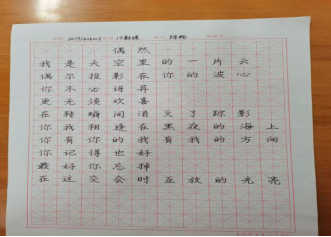 偶然
我是天空里的一片云
偶尔投影在你的波心
你不必讶异
更无须欢喜
在转瞬间消灭了踪影
你我相逢在黑夜的海上
你有你的我有我的方向
你记得也好
最好你忘掉
在这交会时互放的光亮